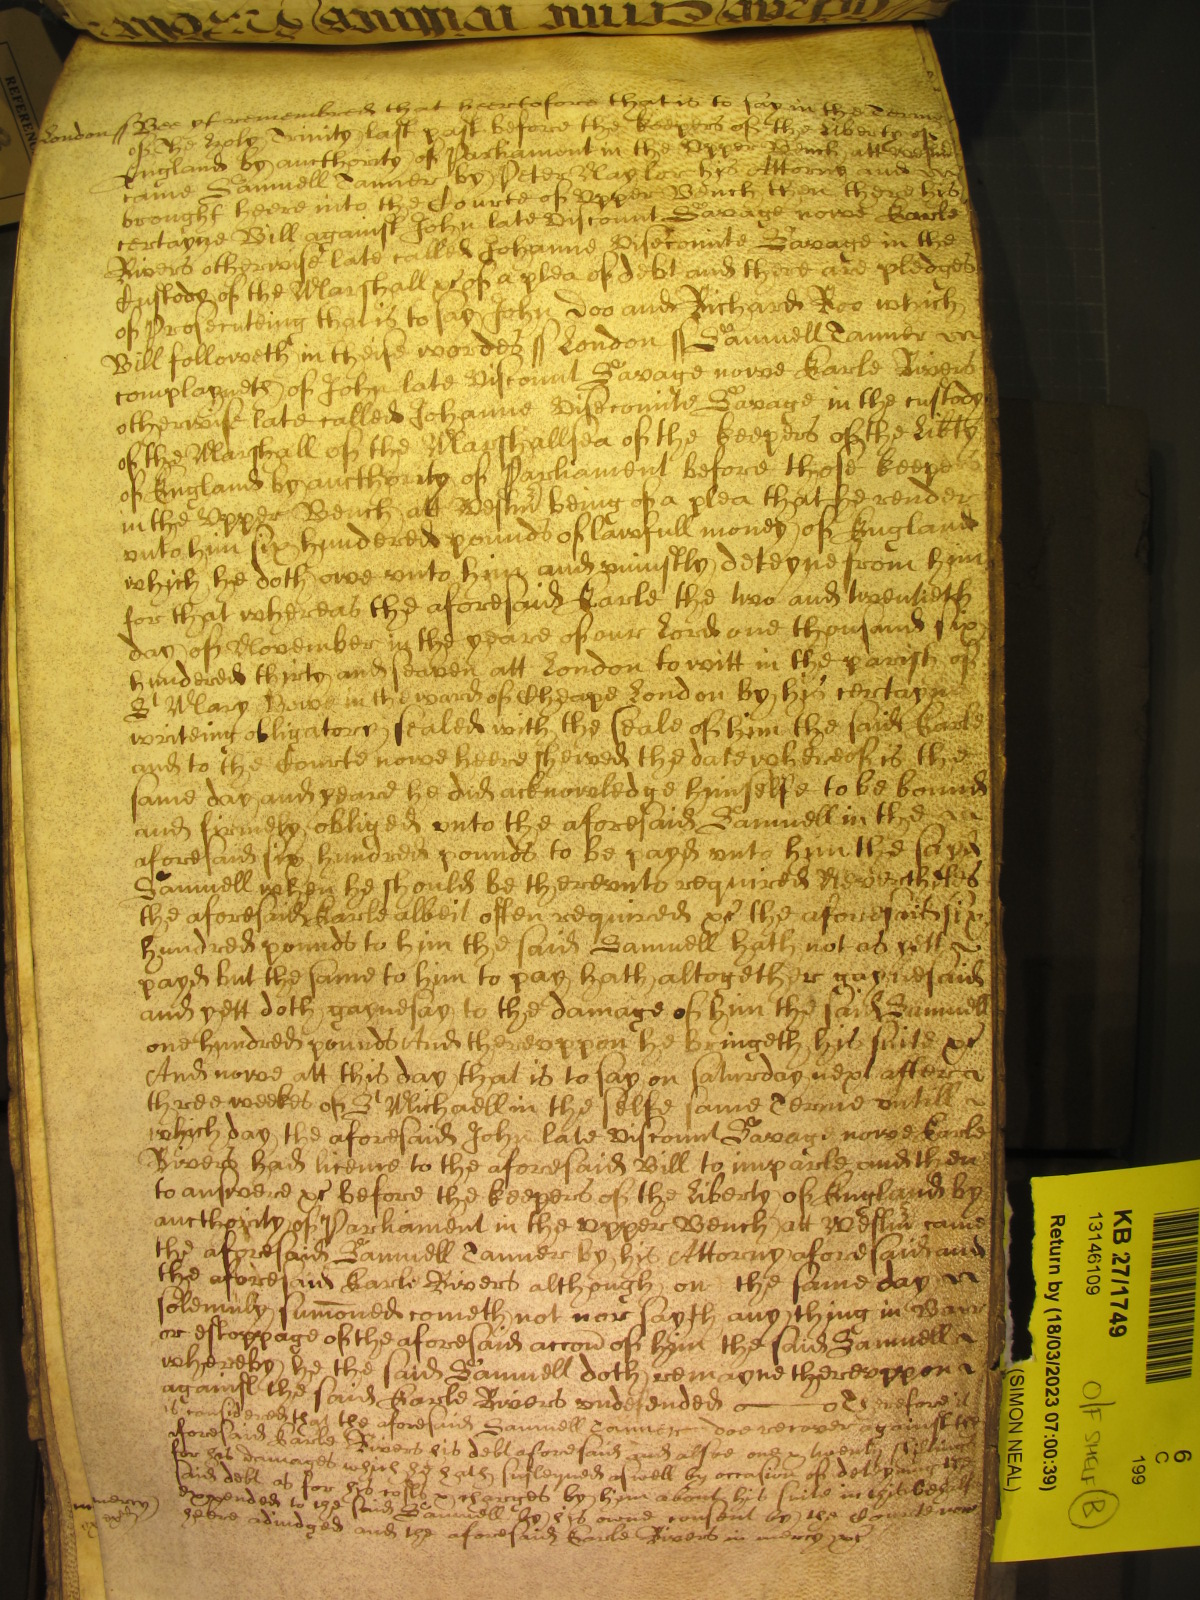 London ss Bee yt remembred that heeretofore that is to say in the Terme
of the Holy Trinity last past before the keepers of the Liberty of
England by aucthority of Parliament in the Upper Bench att Westm
came Samuell Tanner by Peter Naylor his Attorny and
brought heere into the Courte of Upper Bench then there his
certayne Bill against John late Viscount Savage nowe Earle
Rivers otherwise late called Johanne Visecomite Savage in the
Custody of the Marshall &c of a plea of debt and there are pledges
of prosecuteing that is to say John Doo and Richard Roo which
Bill followeth in theise wordes ss London ss Samuell Tanner
complayneth of John late Viscount Savage nowe Earle Rivers
otherwise late called Johanne Visecomite Savage in the custody
of the Marshall of the Marshallsea of the keepers of the Libty
of England by aucthority of Parliament before those keepers
in the Upper Bench att Westm being of a plea that he render
unto him six hundered pounds of lawfull money of England
which he doth owe unto him and uniustly deteyne from him
for that whereas the aforesaid Earle the two and twentieth
day of November in the yeare of our Lord one thousand six
hundered thirty and seaven att London to witt in the parish of
St Mary Bowe in the ward of Cheape London by his certayne
writeing obligatory sealed with the seale of him the said Earle
and to the Courte nowe heere shewed the date whereof is the
same day and yeare he did acknowledge himselfe to be bound
and firmely obliged unto the aforesaid Samuell in the
aforesaid six hundred pounds to be payd unto him the sayd
Samuell when he should be thereunto required Neverthelesse
the aforesaid Earle albeit often required &c the aforesaid six
hundred pounds to him the said Samuell hath not as yett
payd but the same to him to pay hath altogether gaynesaid
and yett doth gaynesay to the damage of him the said Samuell
one hundred pounds And thereuppon he bringeth his suite &c
And nowe att this day that is to say on saturday next after
three weekes of St Michaell in the selfe same Terme untill
which day the aforesaid John late Viscount Savage nowe Earle
Rivers had licence to the aforesaid Bill to imparle and then
to answere &c before the keepers of the Liberty of England by
aucthority of Parliament in the Upper Bench att Westm came
the aforesaid Samuell Tanner by his Attorny aforesaid and
the aforesaid Earle Rivers although on the same day
solemnly summoned cometh not nor sayth any thing in Barr
or estoppage of the aforesaid accon of him the said Samuell
whereby he the said Samuell doth remayne thereuppon
against the said Earle Rivers undefended Therefore it
is considered that the aforesaid Samuell Tanner doe recover against the
aforesaid Earle Rivers his debt aforesaid and alsoe one &  twenty shillings
for his damages which he hath susteyned aswell by occasion of deteyning the
said debt as for his costs & charges by him about his suite in this behalf
expended to the said Samuell by his owne consent by the Courte now
heere adiudged and the aforesaid Earle Rivers in mercy &c
mercy
REFEREN
KB 27/1749
13146109
Return by (18/03/2023 07:00:39)
(SIMON NEAL)
6
C
199
O/F SHELF B